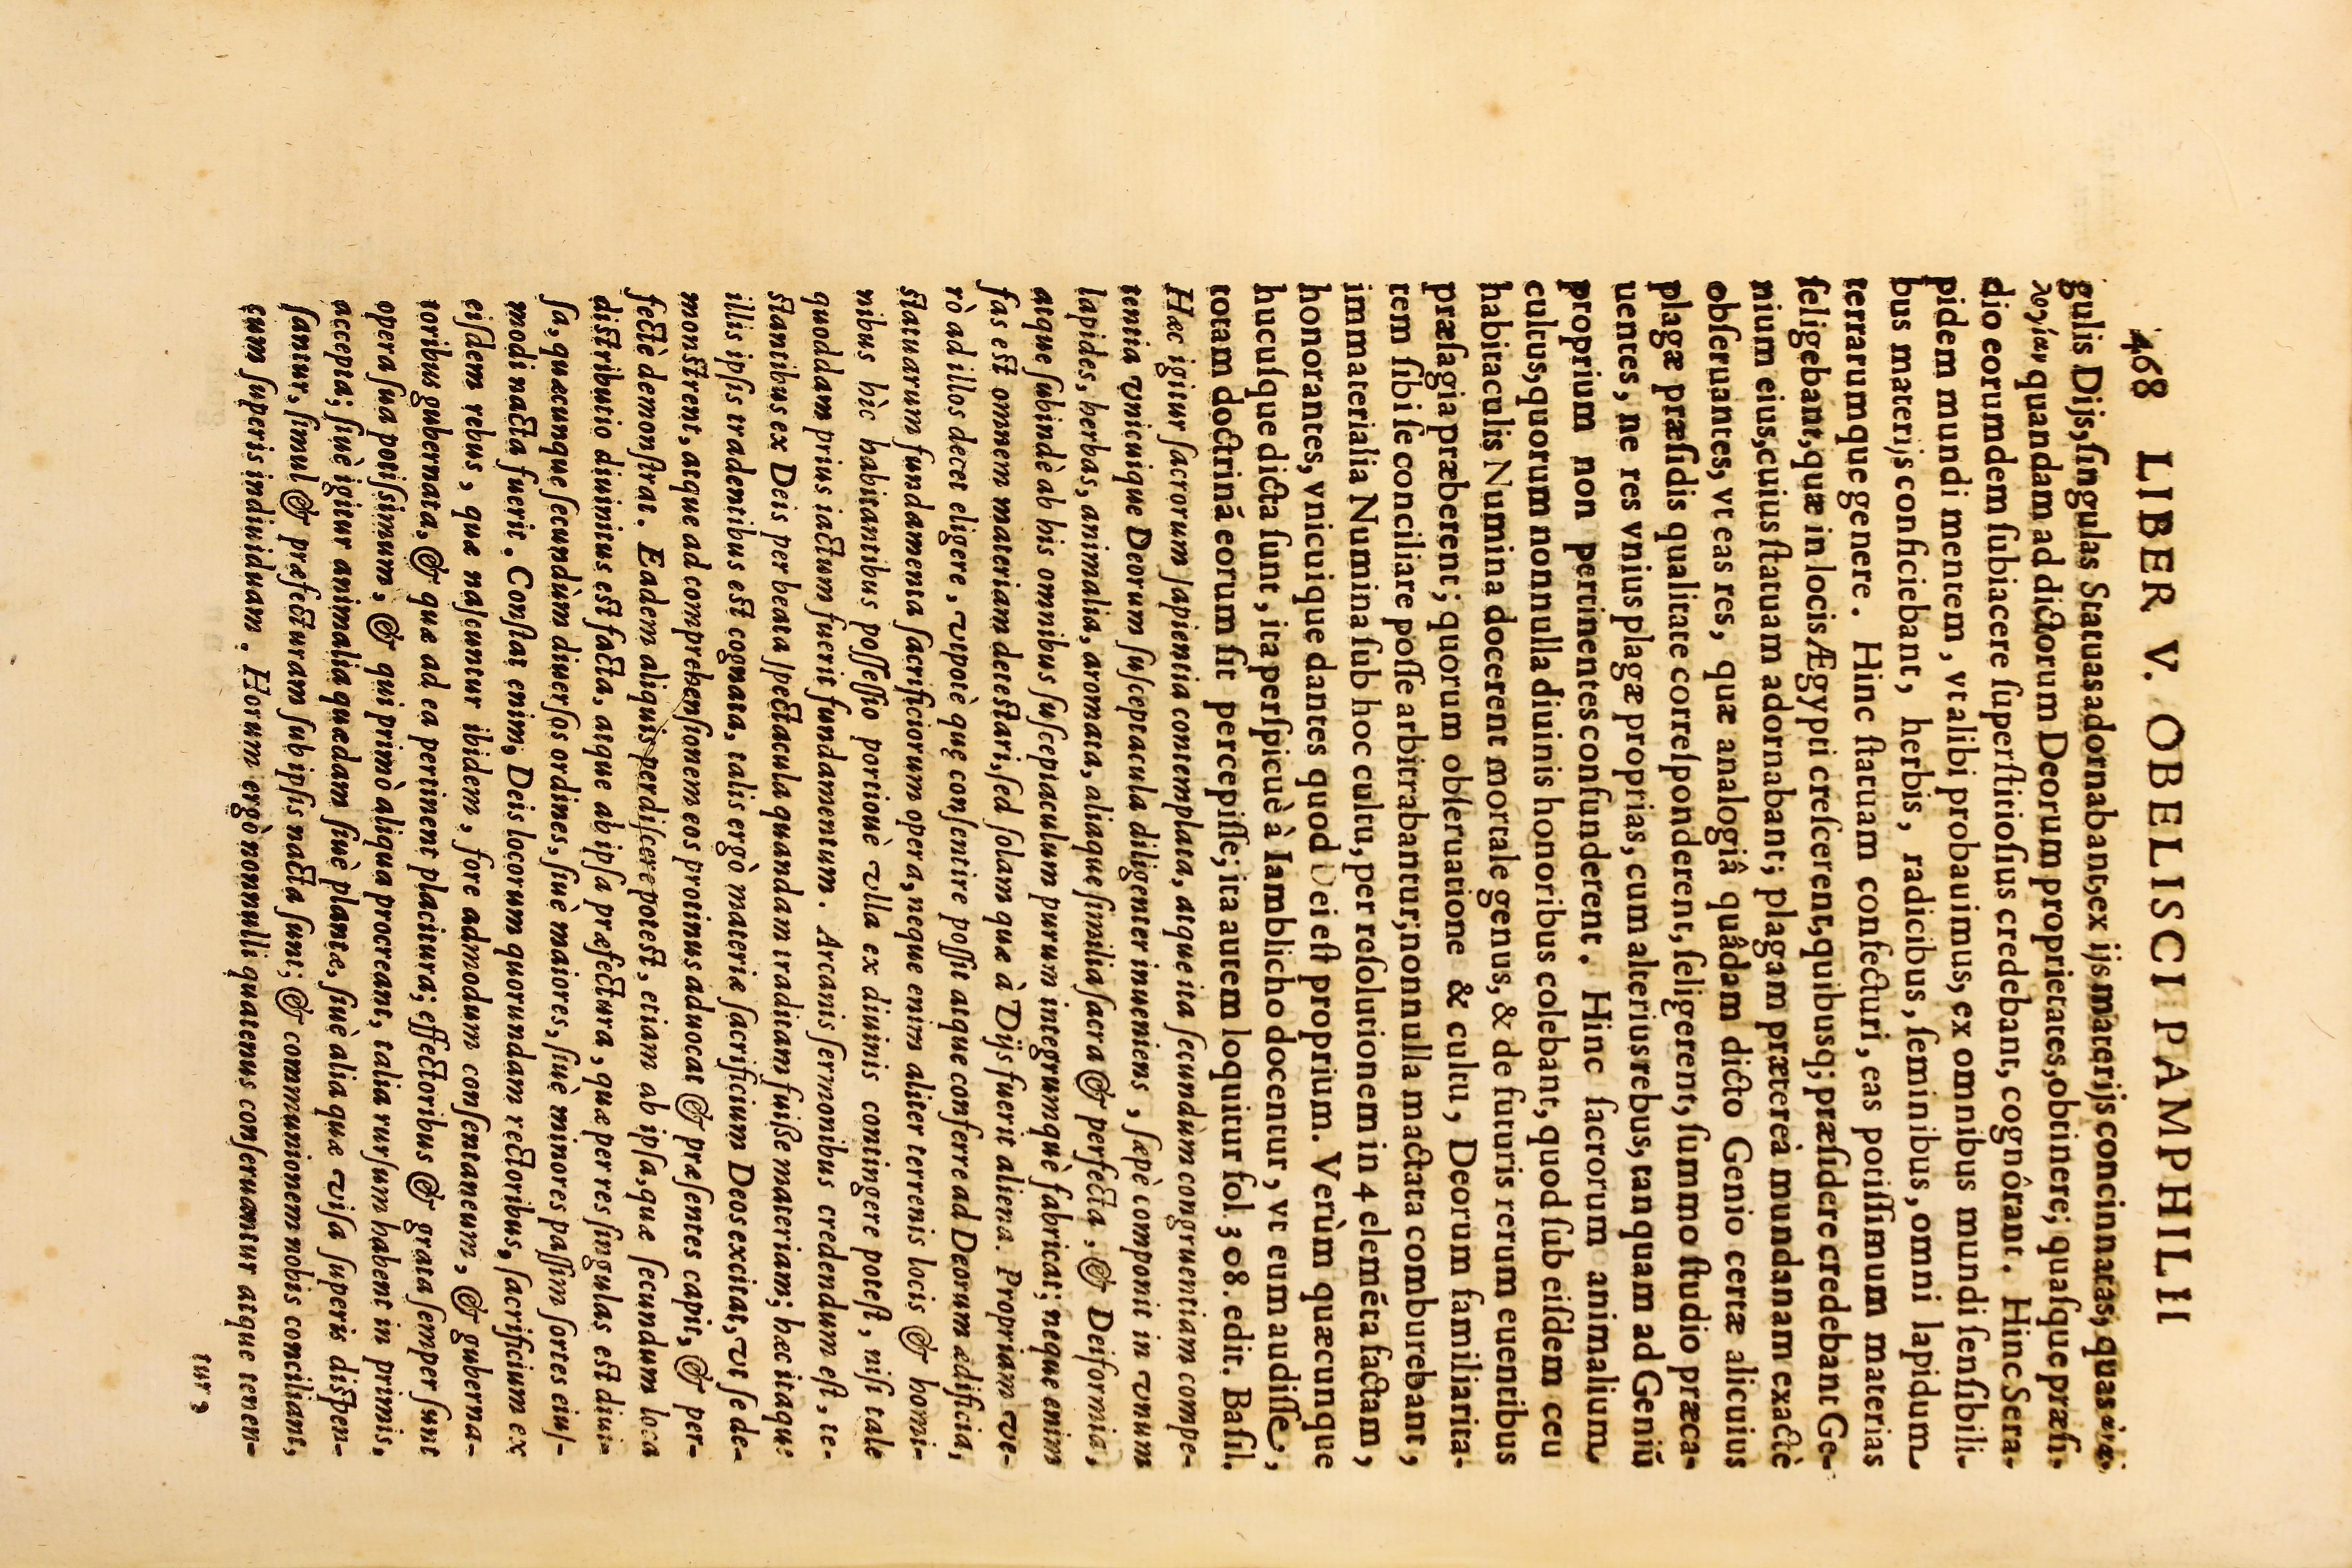 468 LIBER V. OBELISCI PAMPHILII
gulis Dijs, ſingulas Statuas adornabant, ex ijs materijs concinnatas, quas ἀνα-
λογίαν quandam ad dictorum Deorum proprietates, obtinere; quaſque præſi-
dio eorumdem ſubiacere ſuperſtitioſius credebant, cognôrant. Hinc Sera-
pidem mundi mentem, vt alibi probauimus, ex omnibus mundi ſenſibili-
bus materijs conficiebant, herbis, radicibus, ſeminibus, omni lapidum
terrarumque genere. Hinc ſtatuam confecturi, eas potiſſimum materias
ſeligebant, quæ in locis Ægypti creſcerent, quibusq; præſidere credebant Ge-
nium eius, cuius ſtatuam adornabant; plagam præterea mundanam exactè
obſeruantes, vt eas res, quæ analogiâ quâdam dicto Genio certæ alicuius
plagæ præſidis qualitate correſponderent, ſeligerent, ſummo ſtudio præca-
uentes, ne res vnius plagæ proprias, cum alterius rebus, tanquam ad Geniū
proprium non pertinentes confunderent. Hinc ſacrorum animalium
cultus, quorum nonnulla diuinis honoribus colebant, quod ſub eiſdem ceu
habitaculis Numina docerent mortale genus, & de futuris rerum euentibus
præſagia præberent; quorum obſeruatione & cultu, Deorum familiarita-
tem ſibi ſe conciliare poſſe arbitrabantur; nonnulla mactata comburebant,
immaterialia Numina ſub hoc cultu, per reſolutionem in 4 elemēta factam,
honorantes, vnicuique dantes quod Dei eſt proprium. Verùm quæcunque
hucuſque dicta ſunt, ita perſpicuè à Iamblicho docentur, vt eum audiſſe,
totam doctrinā eorum ſit percepiſſe; ita autem loquitur fol 308. edit. Baſil.
Hæc igitur ſacrorum ſapientia contemplata, atque ita ſecundùm congruentiam compe-
tentia vnicuique Deorum ſuſceptacula diligenter inueniens, ſæpè componit in vnum
lapides, herbas, animalia, aromata, aliaque ſimilia ſacra & perfecta, & Deiformia,
atque ſubindè ab his omnibus ſuſceptaculum purum integrumquè fabricat; neque enim
fas eſt omnem materiam deteſtari, ſed ſolam quæ à Dijs fuerit aliena. Propriam ve-
rò ad illos decet eligere, vtpotè quę conſentire poſſit atque conferre ad Deorum ædificia,
ſtatuarum fundamenta ſacrificiorum opera, neque enim aliter terrenis locis & homi-
nibus hìc habitantibus poſſeſſio portiouè vlla ex diuinis contingere poteſt, niſi tale
quoddam prius iactum fuerit fundamentum. Arcanis ſermonibus credendum eſt, te-
ſtantibus ex Deis per beata ſpectacula quandam traditam fuiſse materiam; hæc itaque
illis ipſis tradentibus eſt cognata, talis ergò materiæ ſacrificium Deos excitat, vt ſe de-
monſtrent, atque ad comprehenſionem eos protinus aduocat & præſentes capit, & per-
fectè demonſtrat. Eadem aliquis perdiſcere poteſt, etiam ab ipſa, quæ ſecundum loca
diſtributio diuinitus eſt facta, atque ab ipſa præfectura, quæ per res ſingulas eſt diui-
ſa, quæcunque ſecundùm diuerſos ordines, ſiuè maiores, ſiuè minores paſſim ſortes eiuſ-
modi nacta fuerit. Conſtat enim, Deis locorum quorundam rectoribus, ſacrificium ex
eiſdem rebus, quæ naſcuntur ibidem, fore admodum conſentaneum, & guberna-
toribus gubernata, & quæ ad ea pertinent placitura; effectoribus & grata ſemper ſunt
opera ſua potiſsimum, & qui primò aliqua procreant, talia rurſum habent in primis,
accepta; ſiuè igitur animalia quædam ſiuè plantæ, ſiuè alia quæ viſa ſuperis diſpen-
ſantur, ſimul & præfecturam ſub ipſis nacta ſunt; & communionem nobis conciliant,
cum ſuperis indiuiduam. Horum ergò nonnulli quatenus conſeruantur atque tenen-
tur,